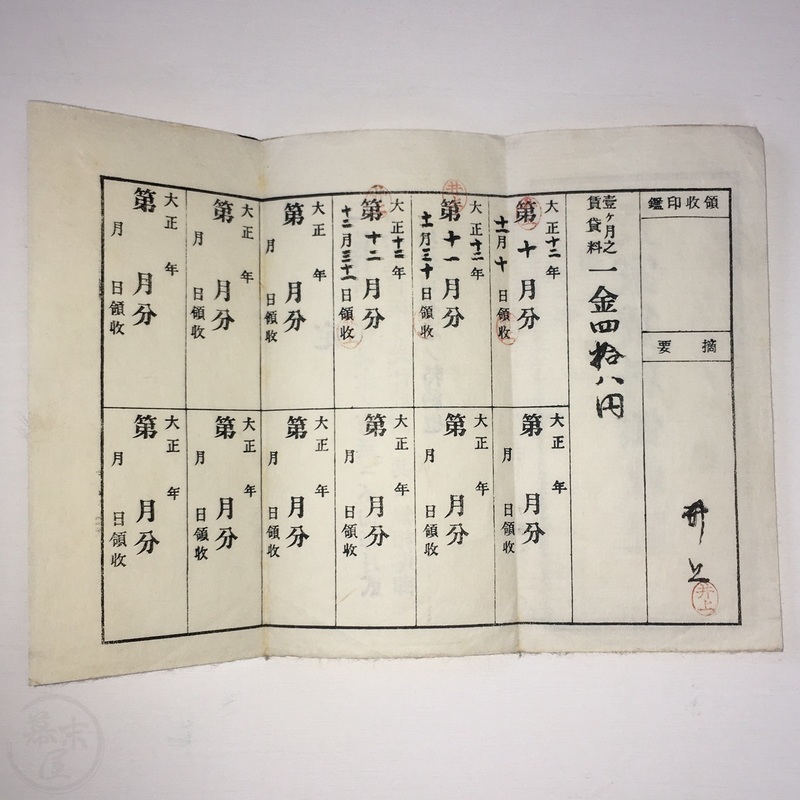 領收印鑑
摘要
井上
井上
壹ヶ月之
賃貸料
一金四拾八円
大正十二年
第十月分
十一月十日領收
大正十二年
第十一月分
十一月三十日領收
大正十二年
第十二月分
十二月三十一日領收
大正 年
第 月分
月 日領收
大正 年
第 月分
月 日領收
大正 年
第 月分
月 日領收
大正 年
第 月分
月 日領收
大正 年
第 月分
月 日領收
大正 年
第 月分
月 日領收
大正 年
第 月分
月 日領收
大正 年
第 月分
月 日領收
大正 年
第 月分
月 日領收
幕末屋